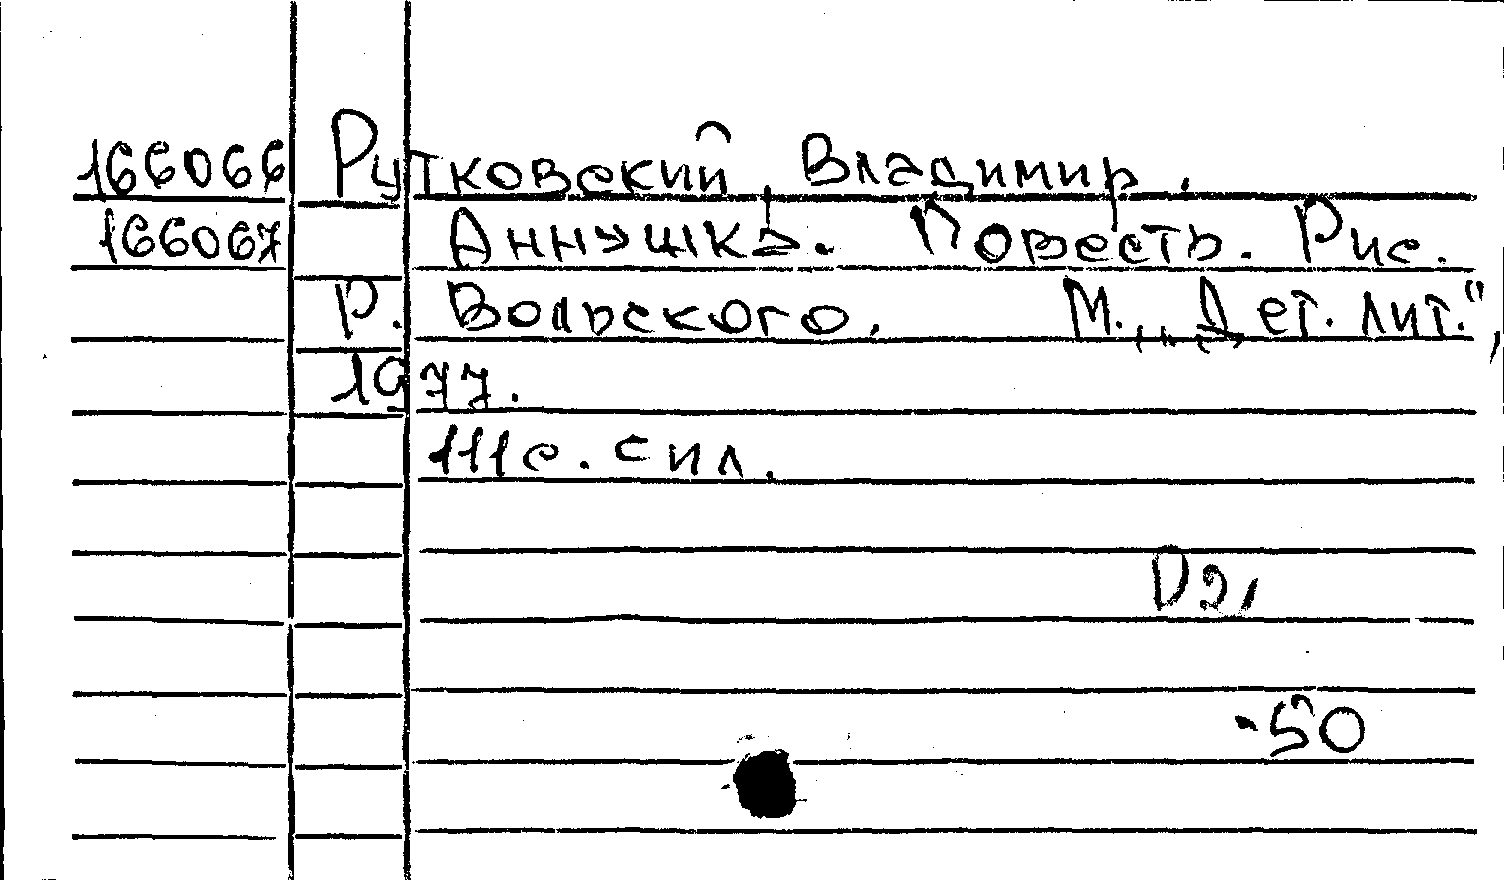 166066 Рутковский, Владимир.
166067 Аннушка. Повесть. Рис.
Р. Вольского. М., „Дет. лит.",
1977.
111 с. с ил.
D2,
-50